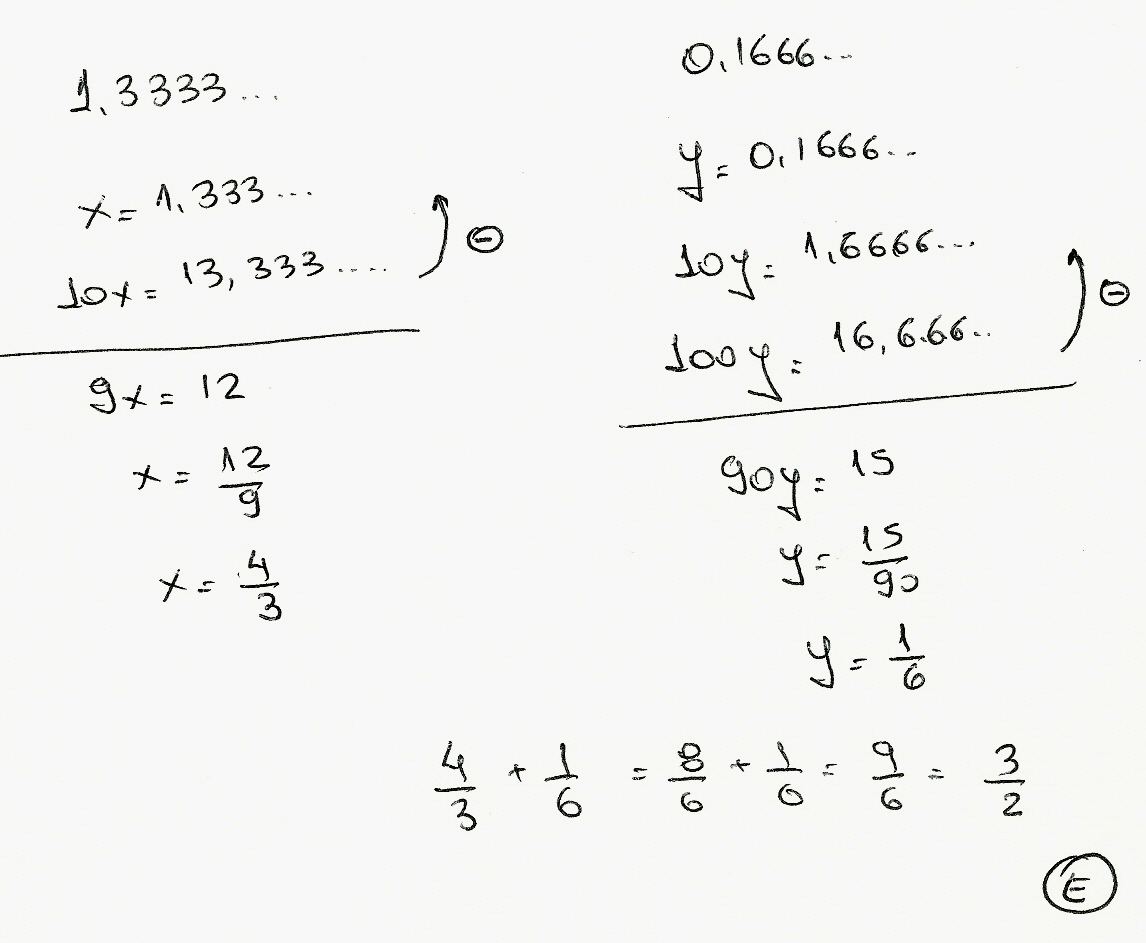 1,3333...
x = 1,333...
10x = 13,333.... ⊖
9x = 12
x = 12/9
x = 4/3
0,1666...
y = 0,1666...
10y = 1,6666...
100y = 16,666.. ⊖
90y = 15
y = 15/90
y = 1/6
4/3 + 1/6 = 8/6 + 1/6 = 9/6 = 3/2
E